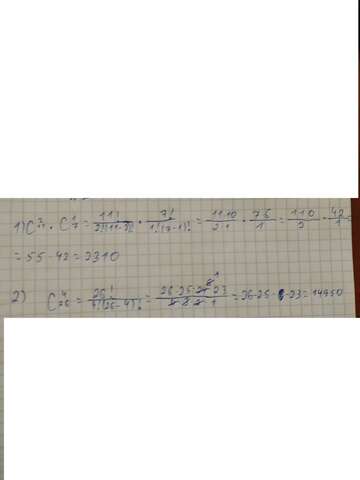 1) C²₁₁ · C¹₇ = 11!/2!(11-2)! · 7!/1!(7-1)! = 11·10/2·1 · 7·6/1 = 110/2 · 42/1
= 55 · 42 = 2310
2) C⁴₂₆ = 26!/4!(26-4)! = 26·25·24·23/4·3·2·1 = 26·25·23 = 14950